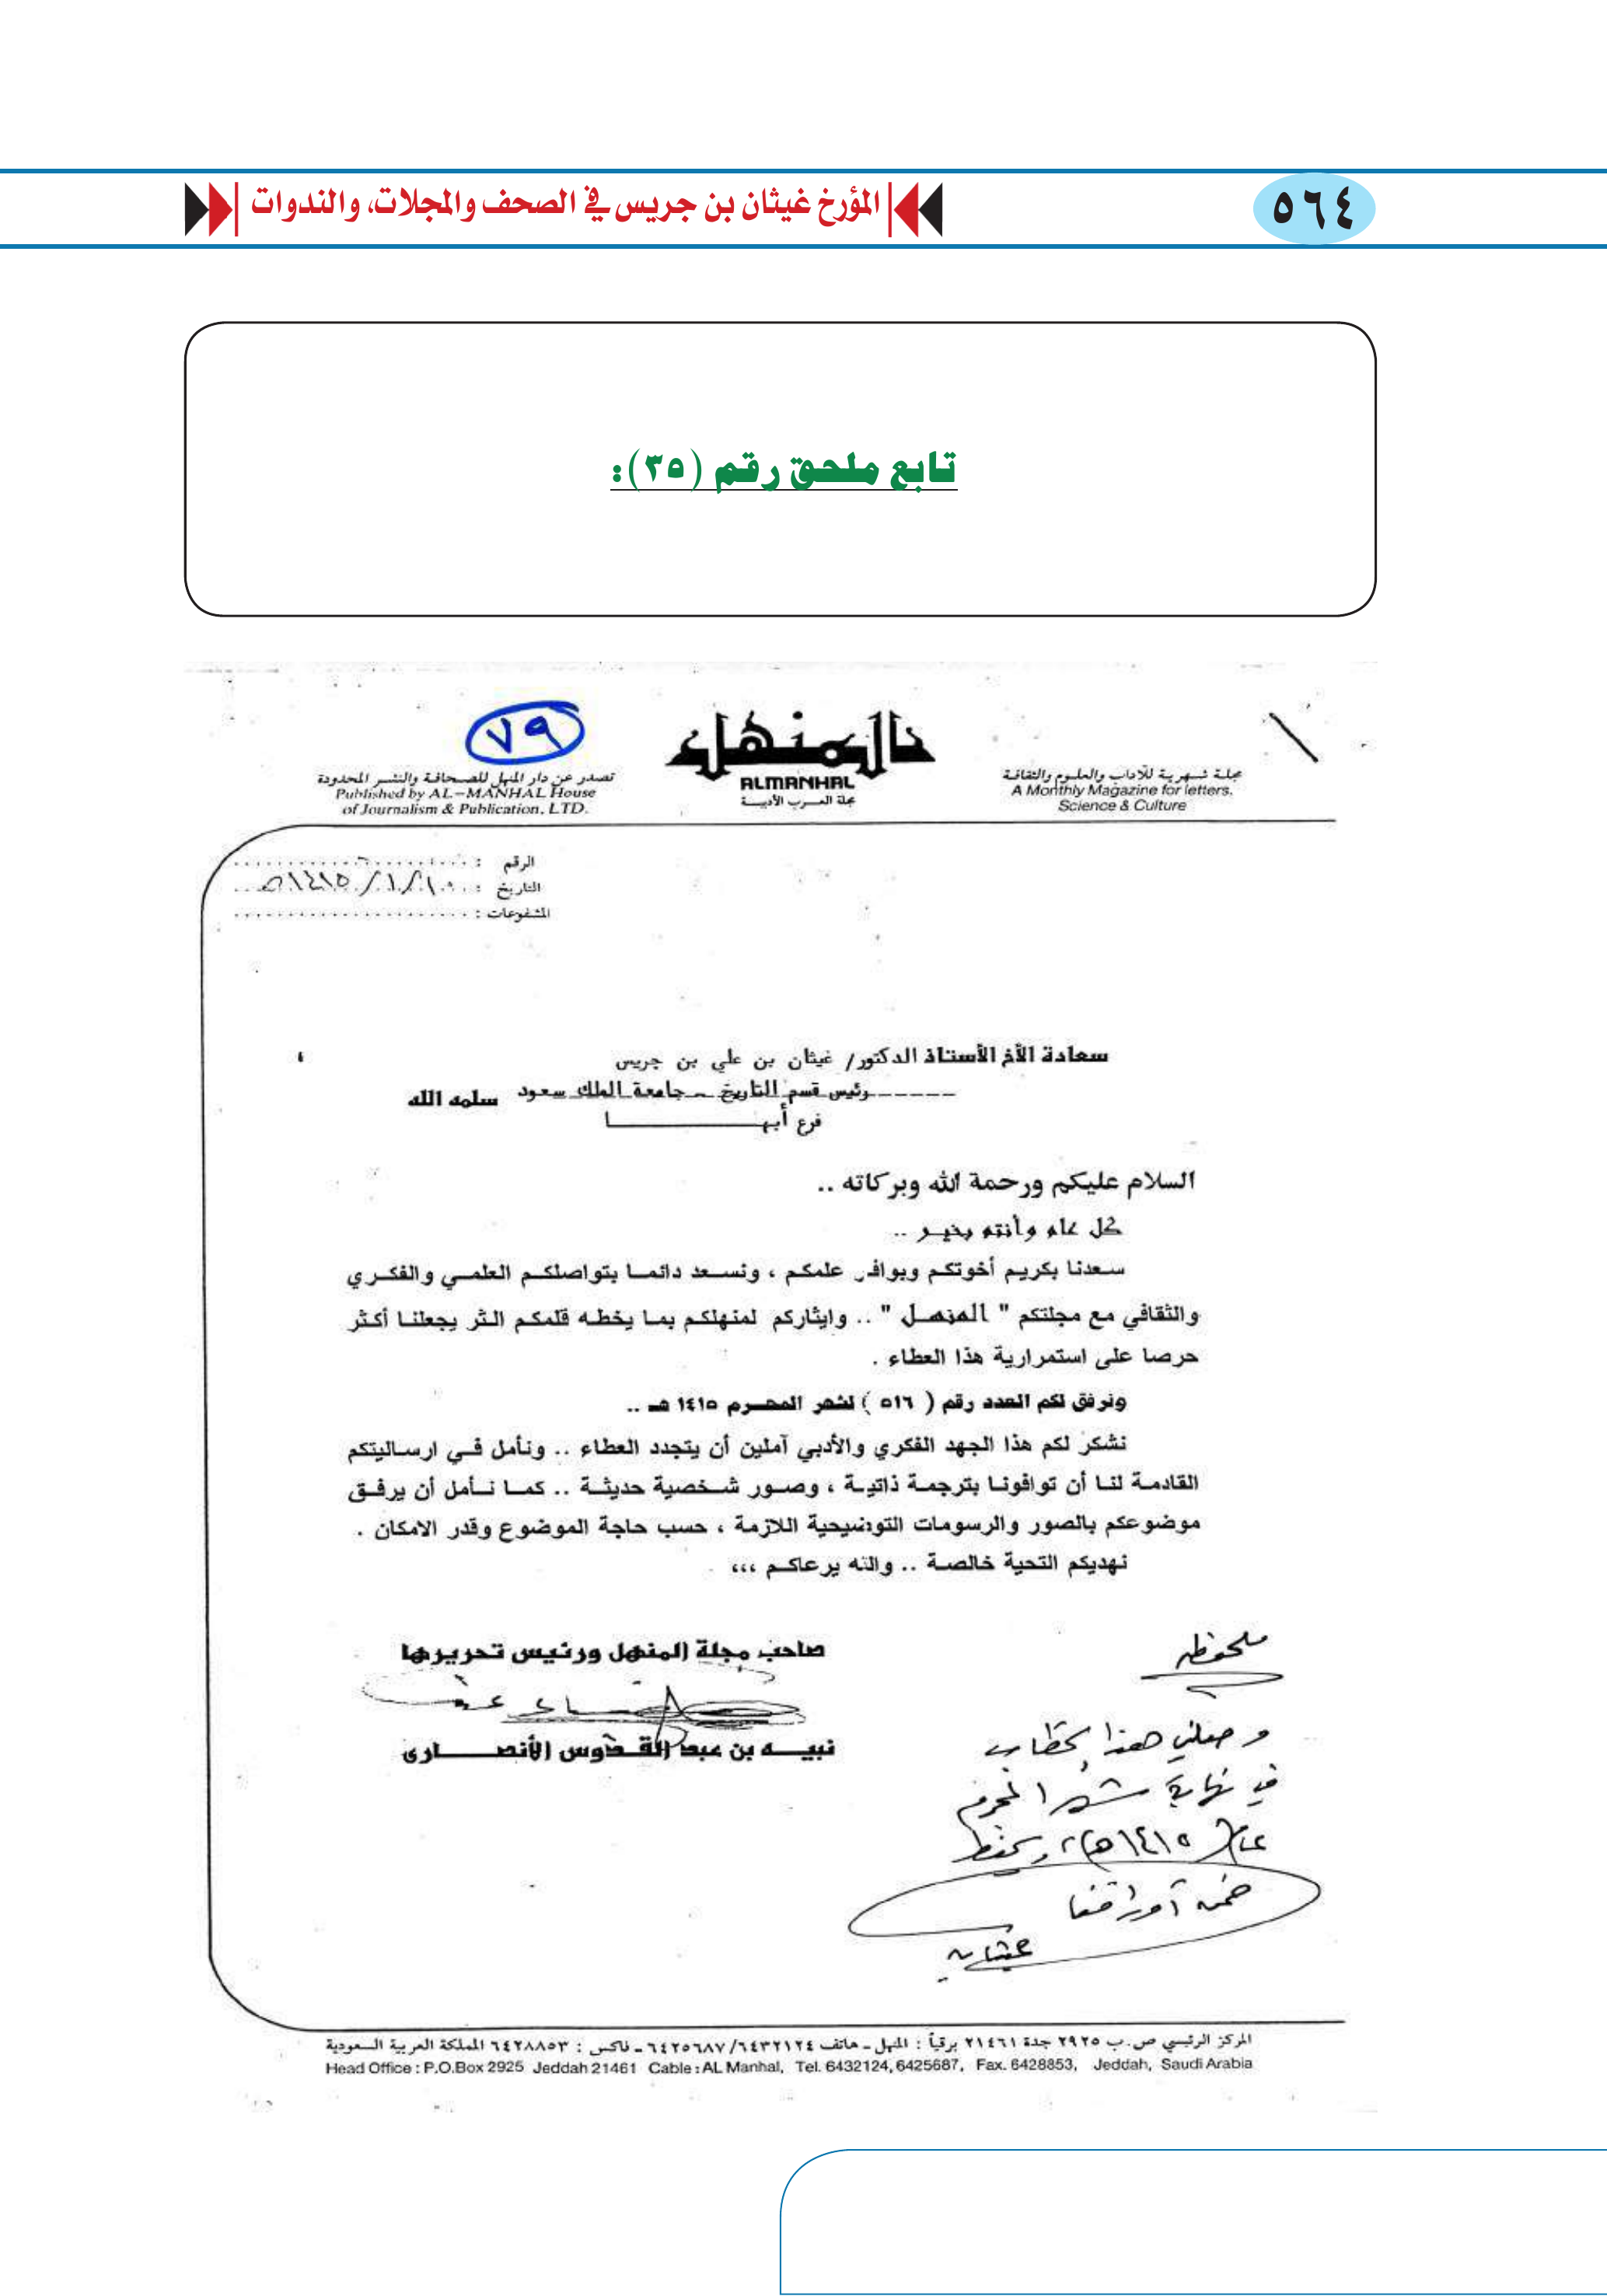 ٥٦٤
المؤرخ غيثان بن جريس في الصحف والمجلات، والندوات
تابع ملحق رقم (٣٥):
مجلة شهرية للآداب والعلوم والثقافة
A Monthly Magazine for letters.
Science & Culture
المنهل
ALMANHAL
مجلة العرب الأدبية
٧٩
تصدر عن دار المنهل للصحافة والنشر المحدودة
Published by AL-MANHAL House
of Journalism & Publication, LTD.
الرقم :
التاريخ : ١٤١٥/١/١٠هـ
المشفوعات :
سعادة الأخ الأستاذ الدكتور/ غيثان بن علي بن جريس ،
رئيس قسم التاريخ - جامعة الملك سعود سلمه الله
فرع أبها
السلام عليكم ورحمة الله وبركاته ..
كل عام وأنتم بخير ..
سعدنا بكريم أخوتكم وبوافر علمكم ، ونسعد دائما بتواصلكم العلمي والفكري
والثقافي مع مجلتكم " المنهل " .. وايثاركم لمنهلكم بما يخطه قلمكم الثر يجعلنا أكثر
حرصا على استمرارية هذا العطاء .
ونرفق لكم العدد رقم ( ٥١٦ ) لشهر المحرم ١٤١٥ هـ ..
نشكر لكم هذا الجهد الفكري والأدبي آملين أن يتجدد العطاء .. ونأمل في ارساليتكم
القادمة لنا أن توافونا بترجمة ذاتية ، وصور شخصية حديثة .. كما نأمل أن يرفق
موضوعكم بالصور والرسومات التوضيحية اللازمة ، حسب حاجة الموضوع وقدر الامكان .
نهديكم التحية خالصة .. والله يرعاكم ،،،
صاحب مجلة المنهل ورئيس تحريرها
نبيه بن عبد القدوس الأنصارى
ملحوظة
وصلني هذا الخطاب
في نهاية شهر المحرم
عام (١٤١٥هـ)، ويحفظ
ضمن أوراقنا
غيثان
المركز الرئيسي ص.ب ٢٩٢٥ جدة ٢١٤٦١ برقياً : المنهل - هاتف ٦٤٣٢١٢٤/ ٦٤٢٥٦٨٧ - فاكس : ٦٤٢٨٨٥٣ المملكة العربية السعودية
Head Office : P.O.Box 2925 Jeddah 21461 Cable : AL Manhal, Tel. 6432124, 6425687, Fax. 6428853, Jeddah, Saudi Arabia